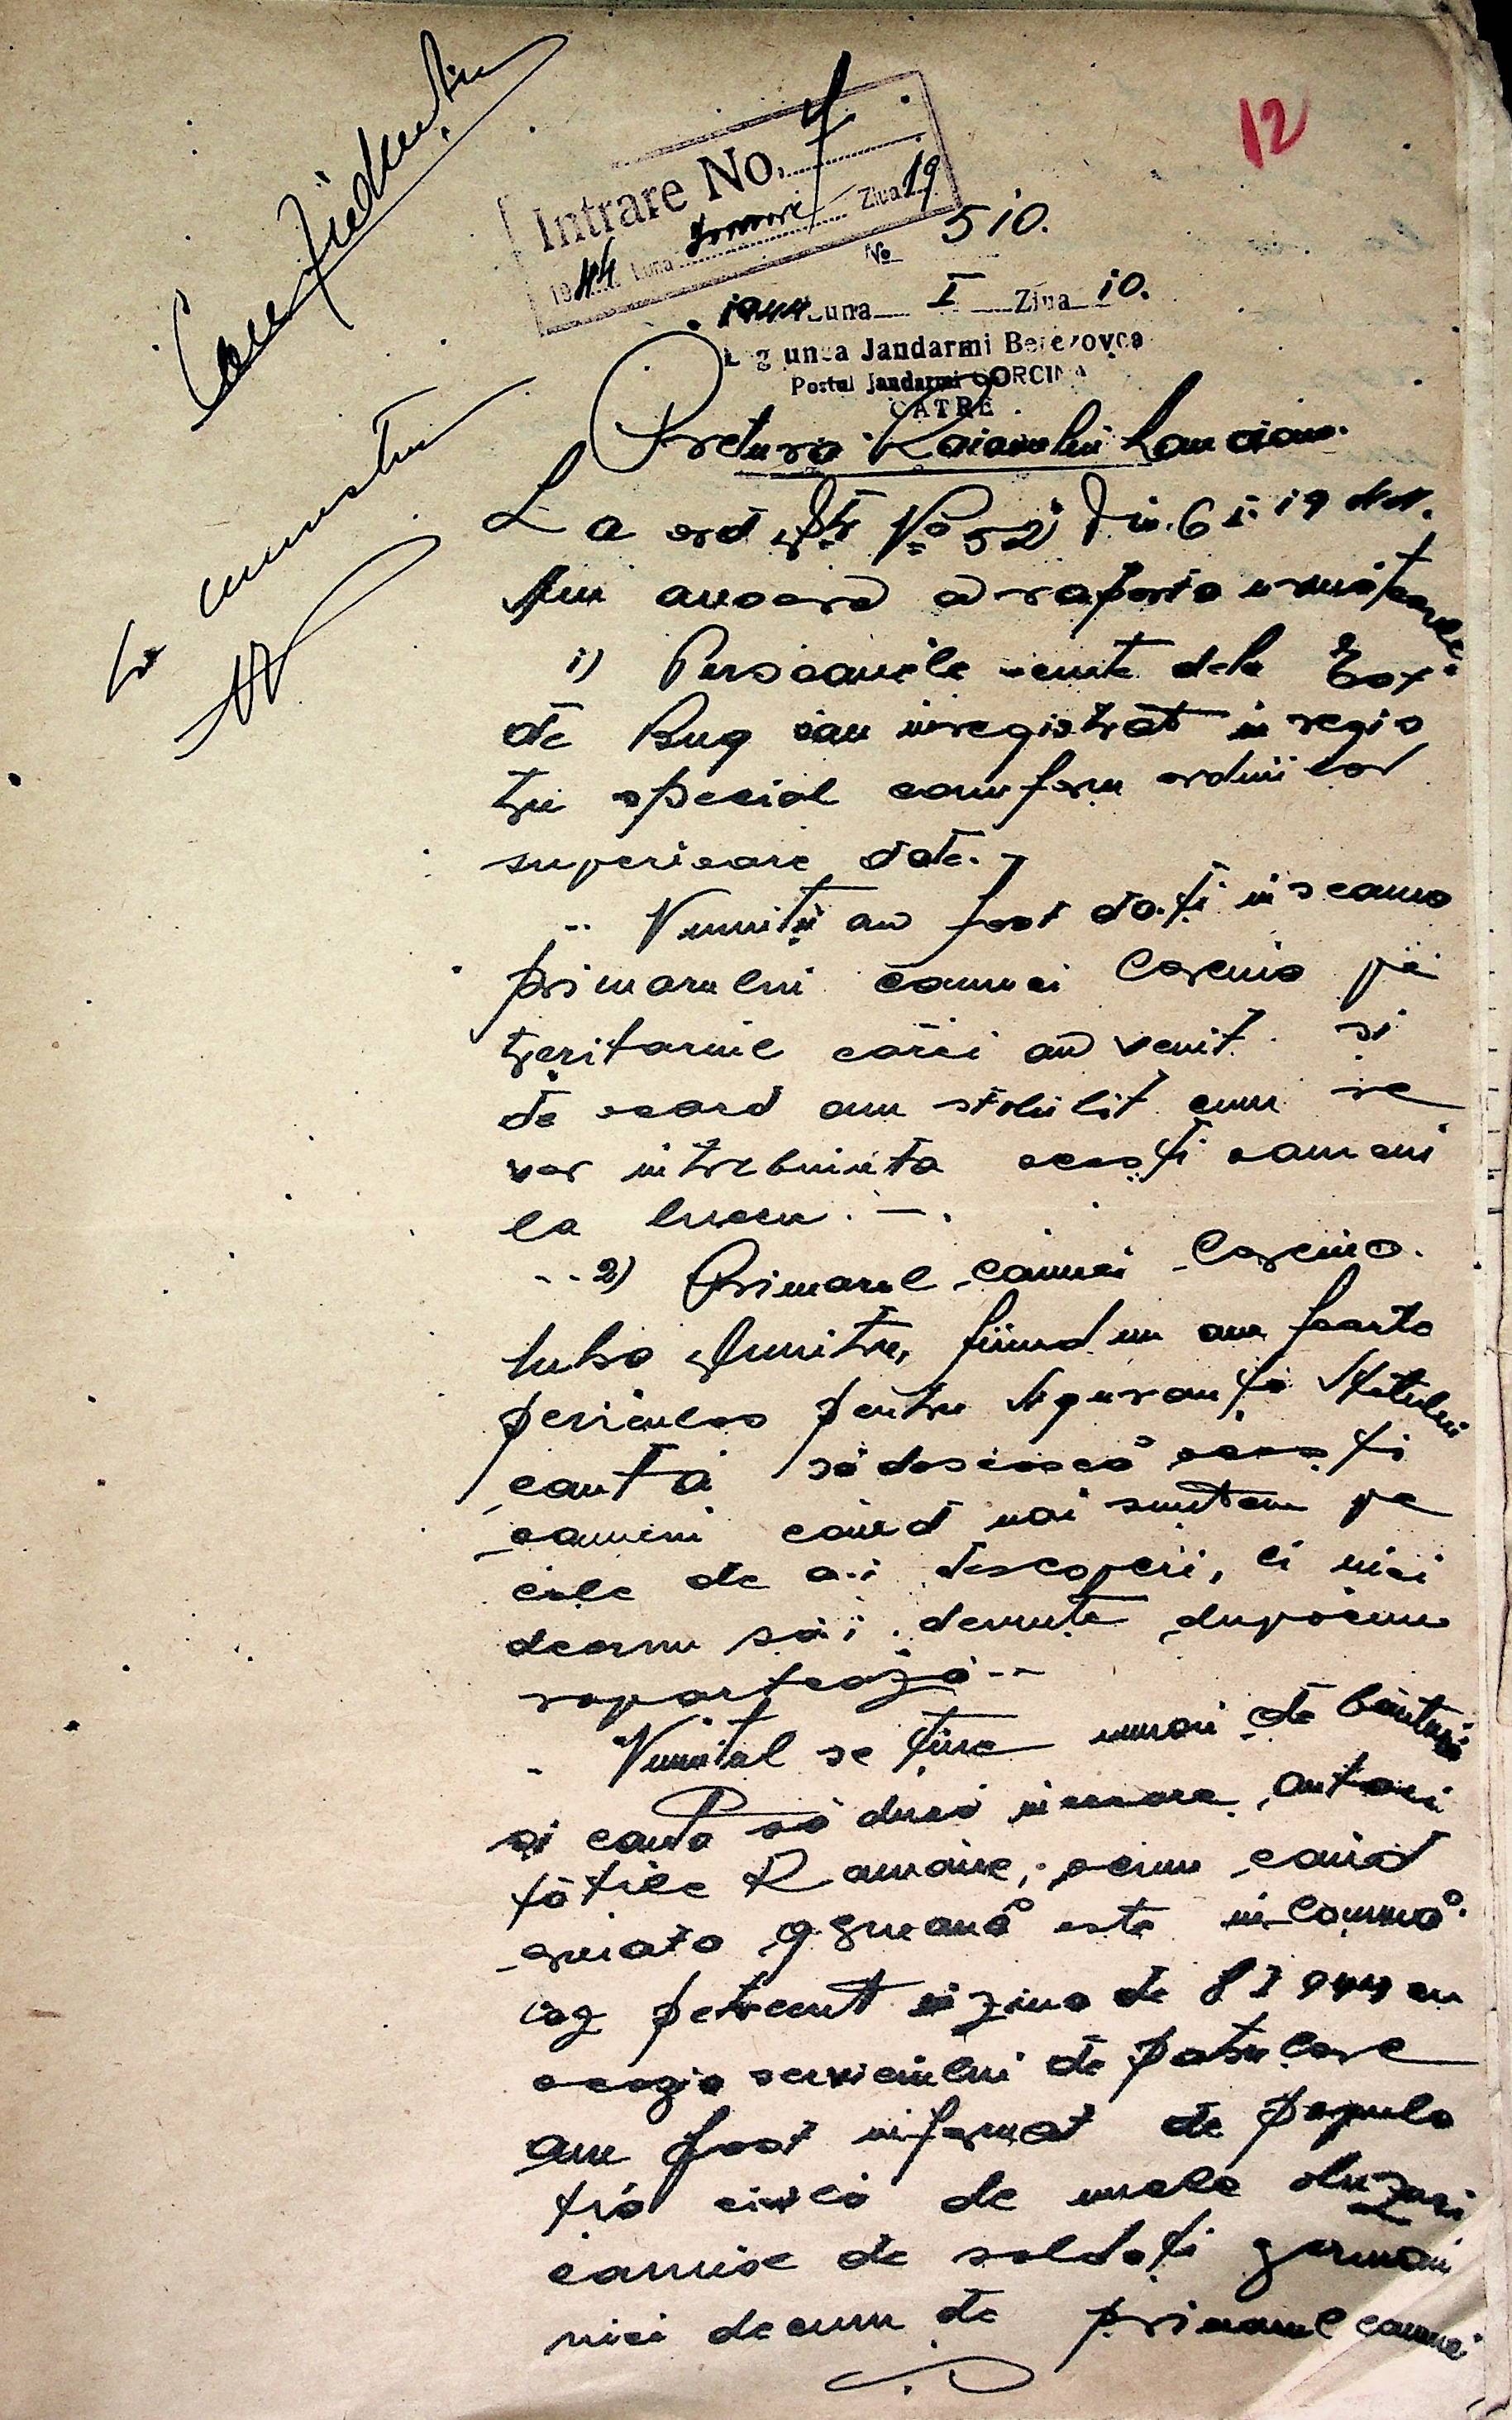 12
Confidențial
Intrare No. 7
1944 Luna Ianuarie Ziua 19
No 510.
1944 Luna I Ziua 10.
Legiunea Jandarmi Berezovca
Postul Jandarmi CORCINA
CATRE
Pretura Raionului Landau.
La ord. No 52 din 6 I 1944.
Am onoare a raporta urmatoarele
1) Persoanele venite dela Est
de Bug sau inregistrat in regis
tru special conform ordinilor
superioare date.
Numiții au fost dați in seama
primarului comunei Corcina pe
teritoriul cărei au venit și
de acord am stabilit cum se
vor intrebuința acești oameni
la lucru. —.
2) Primarul comunei Corcina.
Dumitru, fiind un om foarte
periculos pentru Siguranța Statului
caută să dosească acești
oameni când noi suntem pe
cale de a-i descoperi, ci nici
decum să-i denunțe după cum
raportează
Numitul se ține numai de băutură
și caută să ducă in eroare autori
tățile Române, acum când
armata germană este in comună
caz petrecut in ziua de 8 I 944 cu
ocazia serviciului de patrulare
am fost informat de popula
ția civilă de unele abuzuri
comise de soldați germani
nici decum de primarul comunei